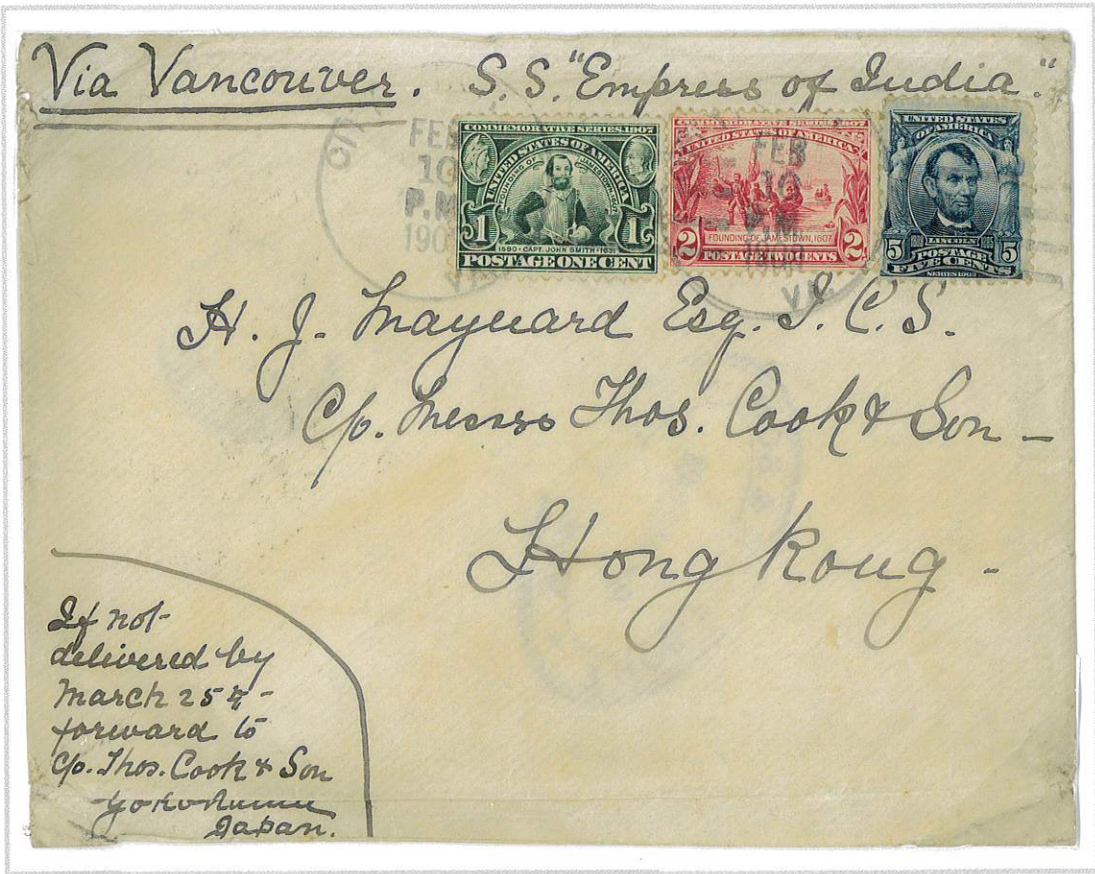 Via Vancouver. S.S. "Empress of India."
FEB
10
P.M.
190
VA
COMMEMORATIVE SERIES, 1907
UNITED STATES OF AMERICA
FOUNDING OF JAMESTOWN
1 1
1580 · CAPT. JOHN SMITH · 1631
POSTAGE ONE CENT
UNITED STATES OF AMERICA
FEB
10
P.M.
VA
2 FOUNDING OF JAMESTOWN, 1607 2
POSTAGE TWO CENTS
UNITED STATES
OF AMERICA
1809 LINCOLN 1865
5 POSTAGE 5
FIVE CENTS
SERIES 1902
H. J. Maynard Esq. I. C. S.
C/o. Messrs Thos. Cook & Son -
Hong Kong -
If not
delivered by
March 25th -
forward to
C/o. Thos. Cook & Son
Yokohama
Japan.